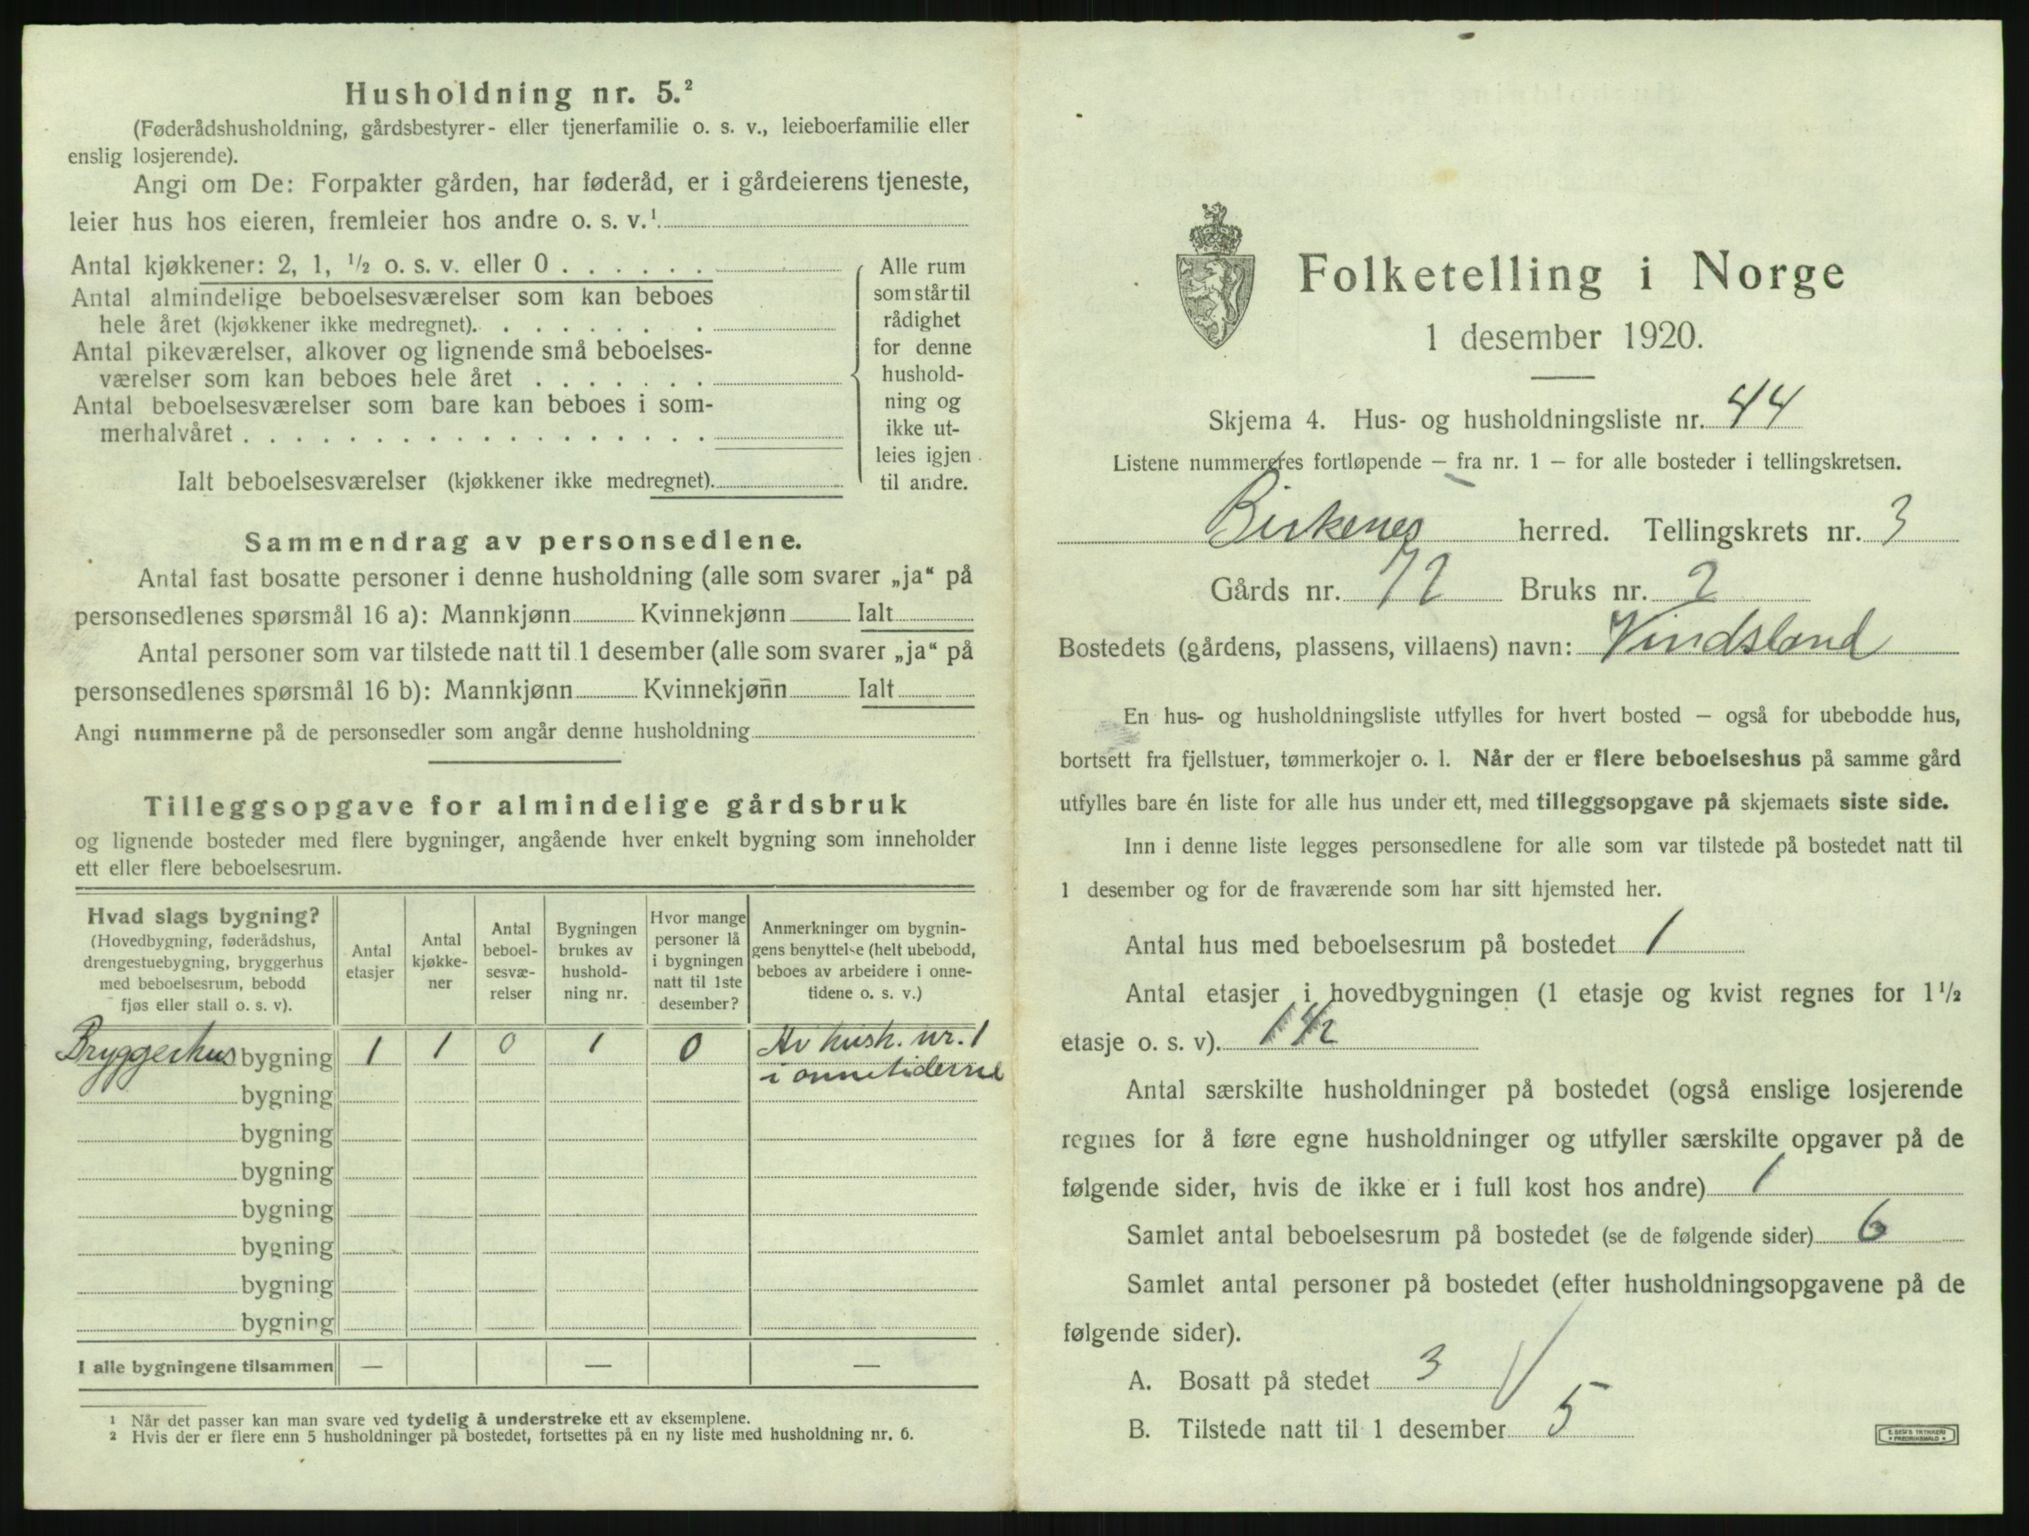 Husholdning nr. 5.²
(Føderådshusholdning, gårdsbestyrer- eller tjenerfamilie o. s. v., leieboerfamilie eller
enslig losjerende).
Angi om De: Forpakter gården, har føderåd, er i gårdeierens tjeneste,
leier hus hos eieren, fremleier hos andre o. s. v.¹
Antal kjøkkener: 2, 1, ½ o. s. v. eller 0 . . . . . .
Antal almindelige beboelsesværelser som kan beboes
hele året (kjøkkener ikke medregnet). . . . . . . .
Antal pikeværelser, alkover og lignende små beboelses-
værelser som kan beboes hele året . . . . . . .
Antal beboelsesværelser som bare kan beboes i som-
merhalvåret . . . . . . . . . . . . . . . . . .
Ialt beboelsesværelser (kjøkkener ikke medregnet).
Alle rum
som står til
rådighet
for denne
hushold-
ning og
ikke ut-
leies igjen
til andre.
Sammendrag av personsedlene.
Antal fast bosatte personer i denne husholdning (alle som svarer „ja“ på
personsedlenes spørsmål 16 a): Mannkjønn Kvinnekjønn Ialt
Antal personer som var tilstede natt til 1 desember (alle som svarer „ja“ på
personsedlenes spørsmål 16 b): Mannkjønn Kvinnekjønn Ialt
Angi nummerne på de personsedler som angår denne husholdning
Tilleggsopgave for almindelige gårdsbruk
og lignende bosteder med flere bygninger, angående hver enkelt bygning som inneholder
ett eller flere beboelsesrum.
Hvad slags bygning?
(Hovedbygning, føderådshus,
drengestuebygning, bryggerhus
med beboelsesrum, bebodd
fjøs eller stall o. s. v).
Antal
etasjer
Antal
kjøkke-
ner
Antal
beboel-
sesvæ-
relser
Bygningen
brukes av
hushold-
ning nr.
Hvor mange
personer lå
i bygningen
natt til 1ste
desember?
Anmerkninger om bygnin-
gens benyttelse (helt ubebodd,
beboes av arbeidere i onne-
tidene o. s. v.)
Bryggerhus bygning 1 1 0 1 0 Av hush. nr. 1
i onnetiderne
bygning
bygning
bygning
bygning
bygning
bygning
bygning
I alle bygningene tilsammen — — —
¹ Når det passer kan man svare ved tydelig å understreke ett av eksemplene.
² Hvis der er flere enn 5 husholdninger på bostedet, fortsettes på en ny liste med husholdning nr. 6.
Folketelling i Norge
1 desember 1920.
Skjema 4. Hus- og husholdningsliste nr. 44
Listene nummereres fortløpende — fra nr. 1 — for alle bosteder i tellingskretsen.
Birkenes herred. Tellingskrets nr. 3
Gårds nr. 72 Bruks nr. 2
Bostedets (gårdens, plassens, villaens) navn: Vindsland
En hus- og husholdningsliste utfylles for hvert bosted — også for ubebodde hus,
bortsett fra fjellstuer, tømmerkojer o. l. Når der er flere beboelseshus på samme gård
utfylles bare én liste for alle hus under ett, med tilleggsopgave på skjemaets siste side.
Inn i denne liste legges personsedlene for alle som var tilstede på bostedet natt til
1 desember og for de fraværende som har sitt hjemsted her.
Antal hus med beboelsesrum på bostedet 1
Antal etasjer i hovedbygningen (1 etasje og kvist regnes for 1½
etasje o. s. v). 1½
Antal særskilte husholdninger på bostedet (også enslige losjerende
regnes for å føre egne husholdninger og utfyller særskilte opgaver på de
følgende sider, hvis de ikke er i full kost hos andre) 1
Samlet antal beboelsesrum på bostedet (se de følgende sider) 6
Samlet antal personer på bostedet (efter husholdningsopgavene på de
følgende sider).
A. Bosatt på stedet 3
B. Tilstede natt til 1 desember 5